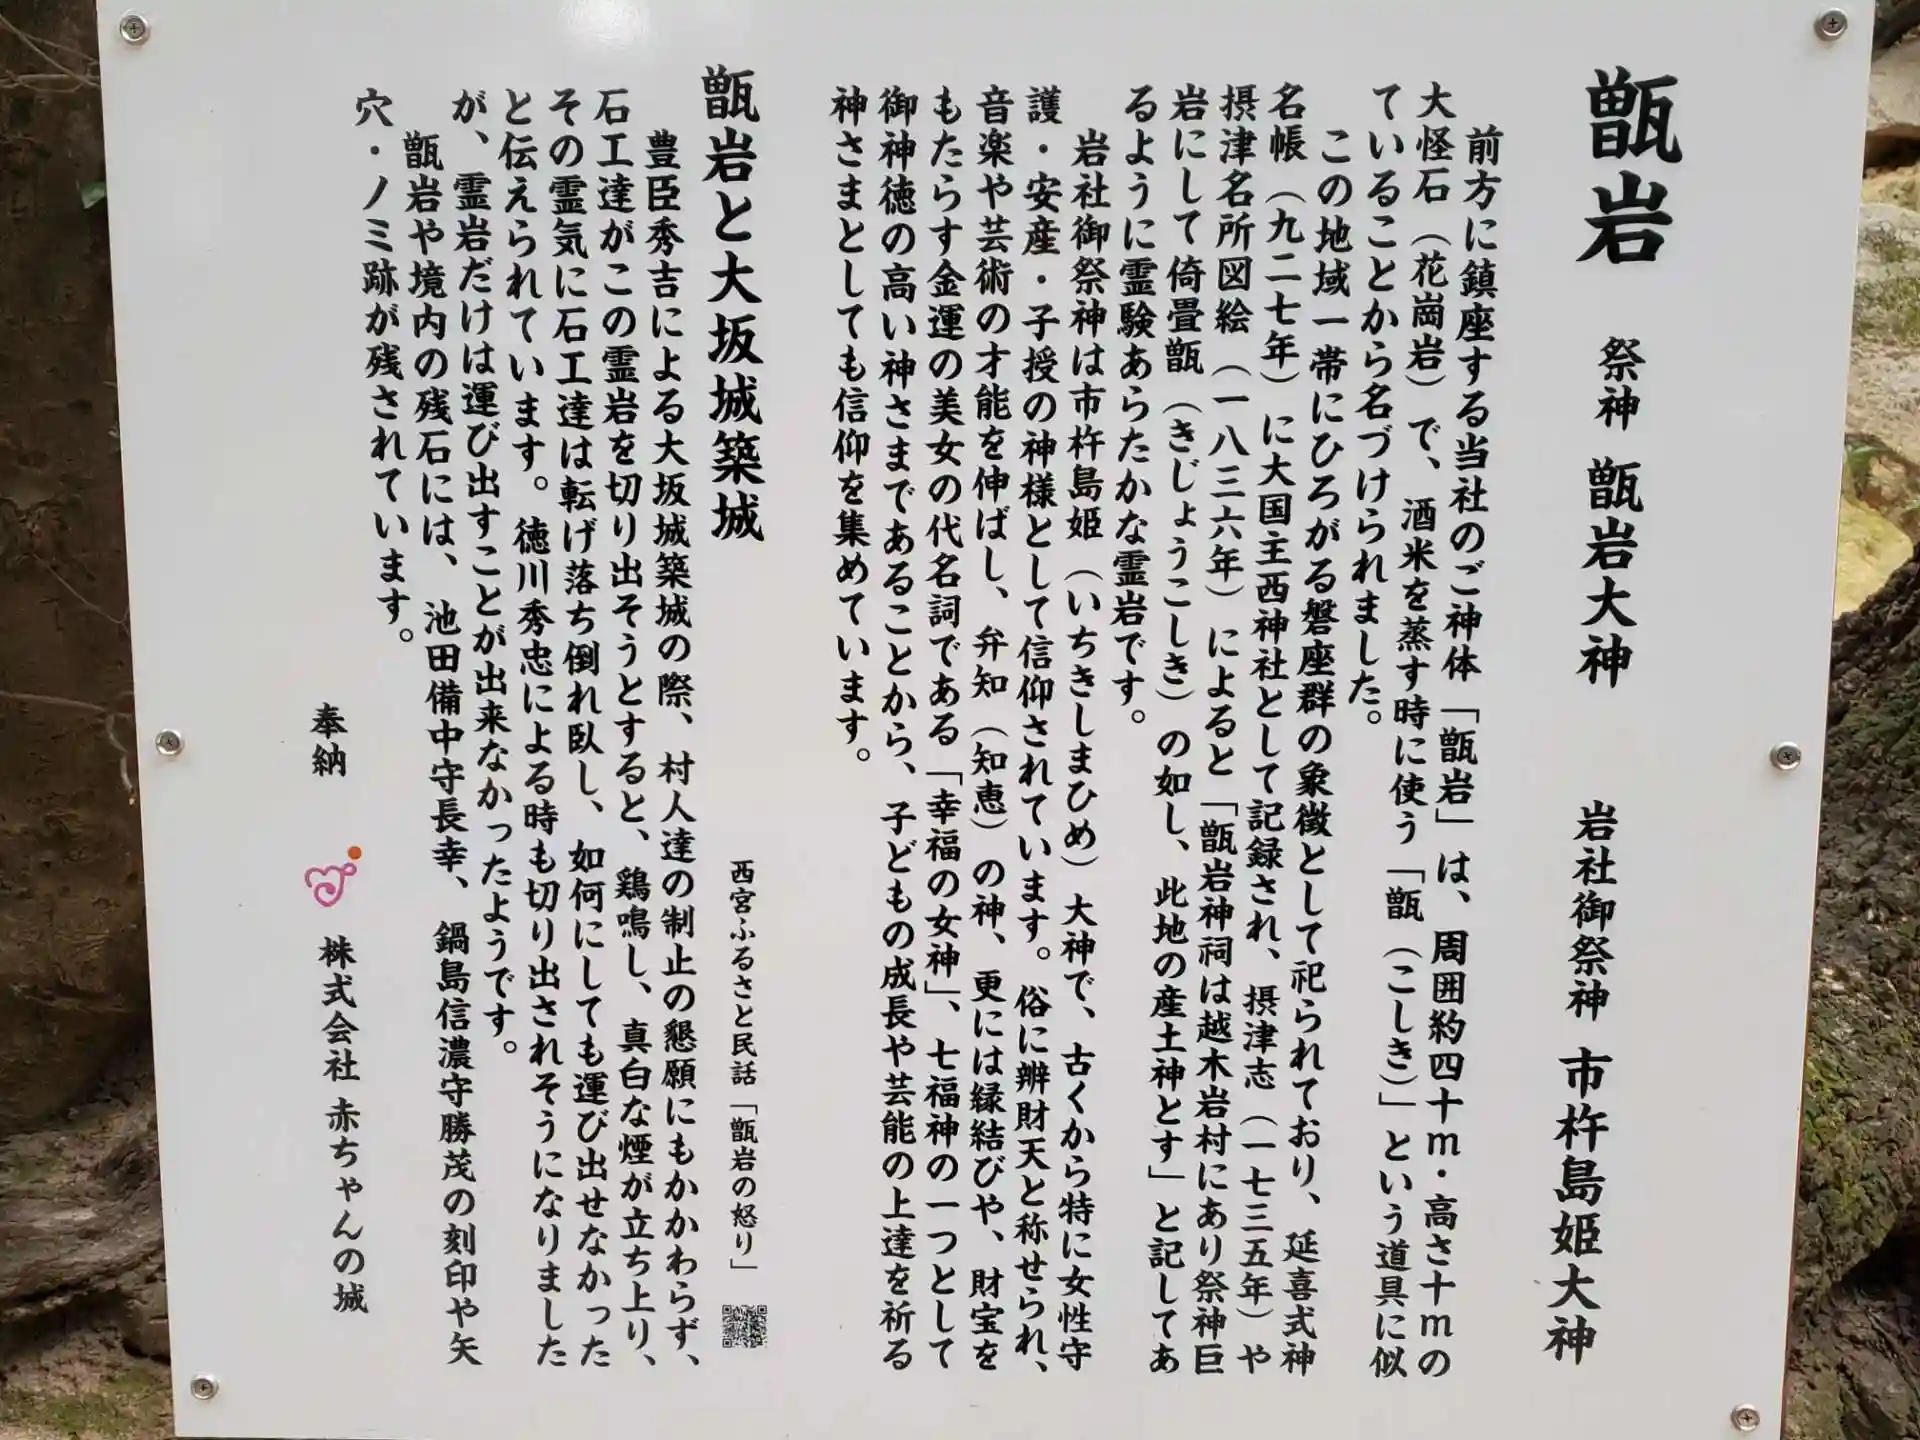 甑岩 祭神 甑岩大神 岩社御祭神 市杵島姫大神
前方に鎮座する当社のご神体「甑岩」は、周囲約四十m・高さ十mの
大怪石（花崗岩）で、酒米を蒸す時に使う「甑（こしき）」という道具に似
ていることから名づけられました。
この地域一帯にひろがる磐座群の象徴として祀られており、延喜式神
名帳（九二七年）に大国主西神社として記録され、摂津志（一七三五年）や
摂津名所図絵（一八三六年）によると「甑岩神祠は越木岩村にあり祭神巨
岩にして倚畳甑（きじょうこしき）の如し、此地の産土神とす」と記してあ
るように霊験あらたかな霊岩です。
岩社御祭神は市杵島姫（いちきしまひめ）大神で、古くから特に女性守
護・安産・子授の神様として信仰されています。俗に辨財天と称せられ、
音楽や芸術の才能を伸ばし、弁知（知恵）の神、更には縁結びや、財宝を
もたらす金運の美女の代名詞である「幸福の女神」、七福神の一つとして
御神徳の高い神さまであることから、子どもの成長や芸能の上達を祈る
神さまとしても信仰を集めています。
甑岩と大坂城築城 西宮ふるさと民話「甑岩の怒り」
豊臣秀吉による大坂城築城の際、村人達の制止の懇願にもかかわらず、
石工達がこの霊岩を切り出そうとすると、鶏鳴し、真白な煙が立ち上り、
その霊気に石工達は転げ落ち倒れ臥し、如何にしても運び出せなかった
と伝えられています。徳川秀忠による時も切り出されそうになりました
が、霊岩だけは運び出すことが出来なかったようです。
甑岩や境内の残石には、池田備中守長幸、鍋島信濃守勝茂の刻印や矢
穴・ノミ跡が残されています。
奉納 株式会社 赤ちゃんの城